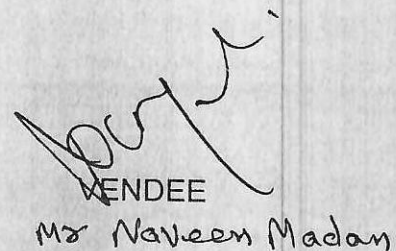 VENDEE
Mr Naveen Madan